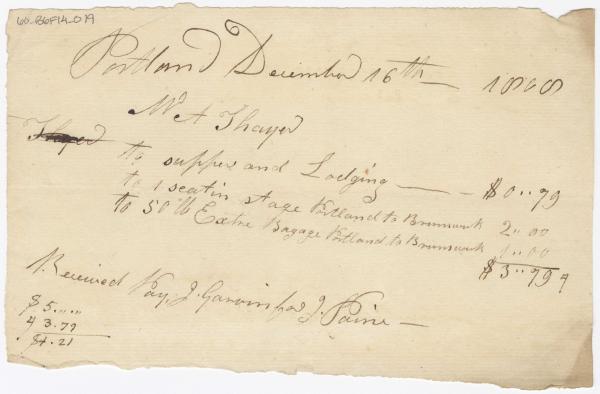 60-B6F14-019
Portland December 16th — 1808
Mr A Thayer
Thayer
to supper and Lodging — $0..79
to 1 seat in stage Portland to Brunswick 2..00
to 50 lb Extre Bagage Portland to Brunswick 1..00
$3..79
Received Pay J. Garvin for J. Paine —
$5....
3.79
$1.21